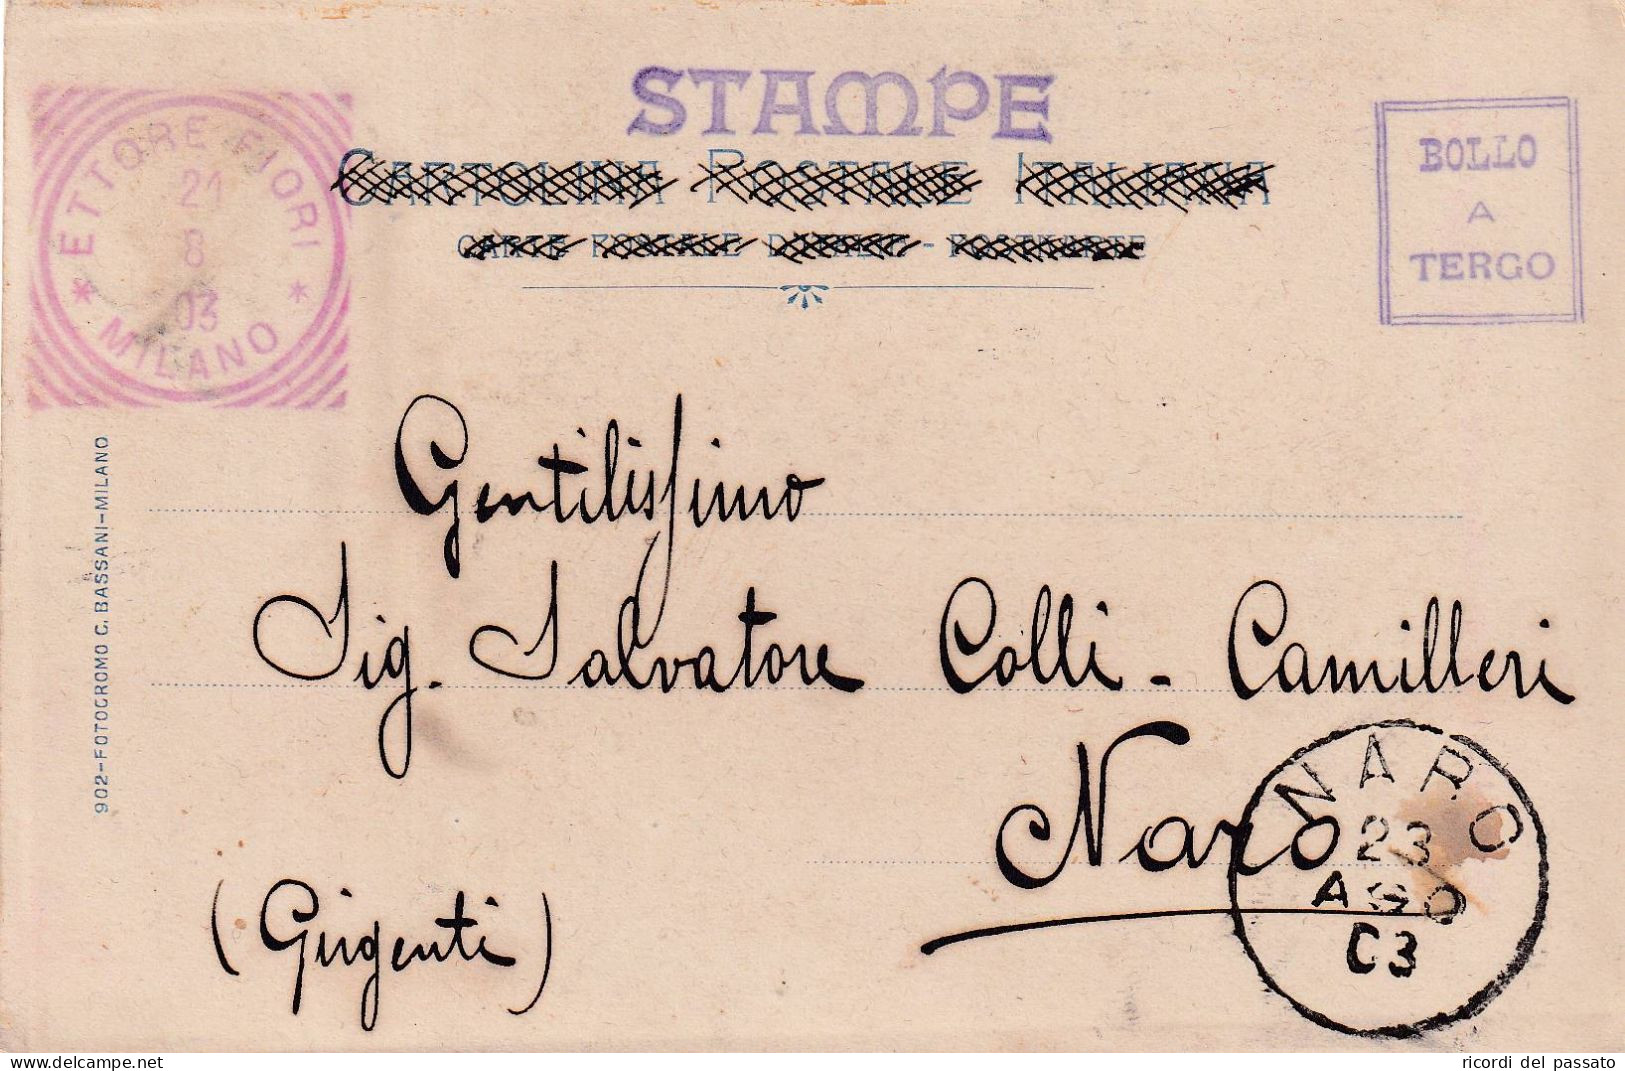 STAMPE
CARTOLINA POSTALE ITALIANA
CARTE POSTALE D'ITALIE - POSTKARTE
ETTORE FIORI
21
8
03
* MILANO *
BOLLO
A
TERGO
902-FOTOCROMO C. BASSANI-MILANO
Gentilissimo
Sig. Salvatore Colli - Camilleri
Naro
(Girgenti)
NARO
23
AGO
03
ricordi del passato